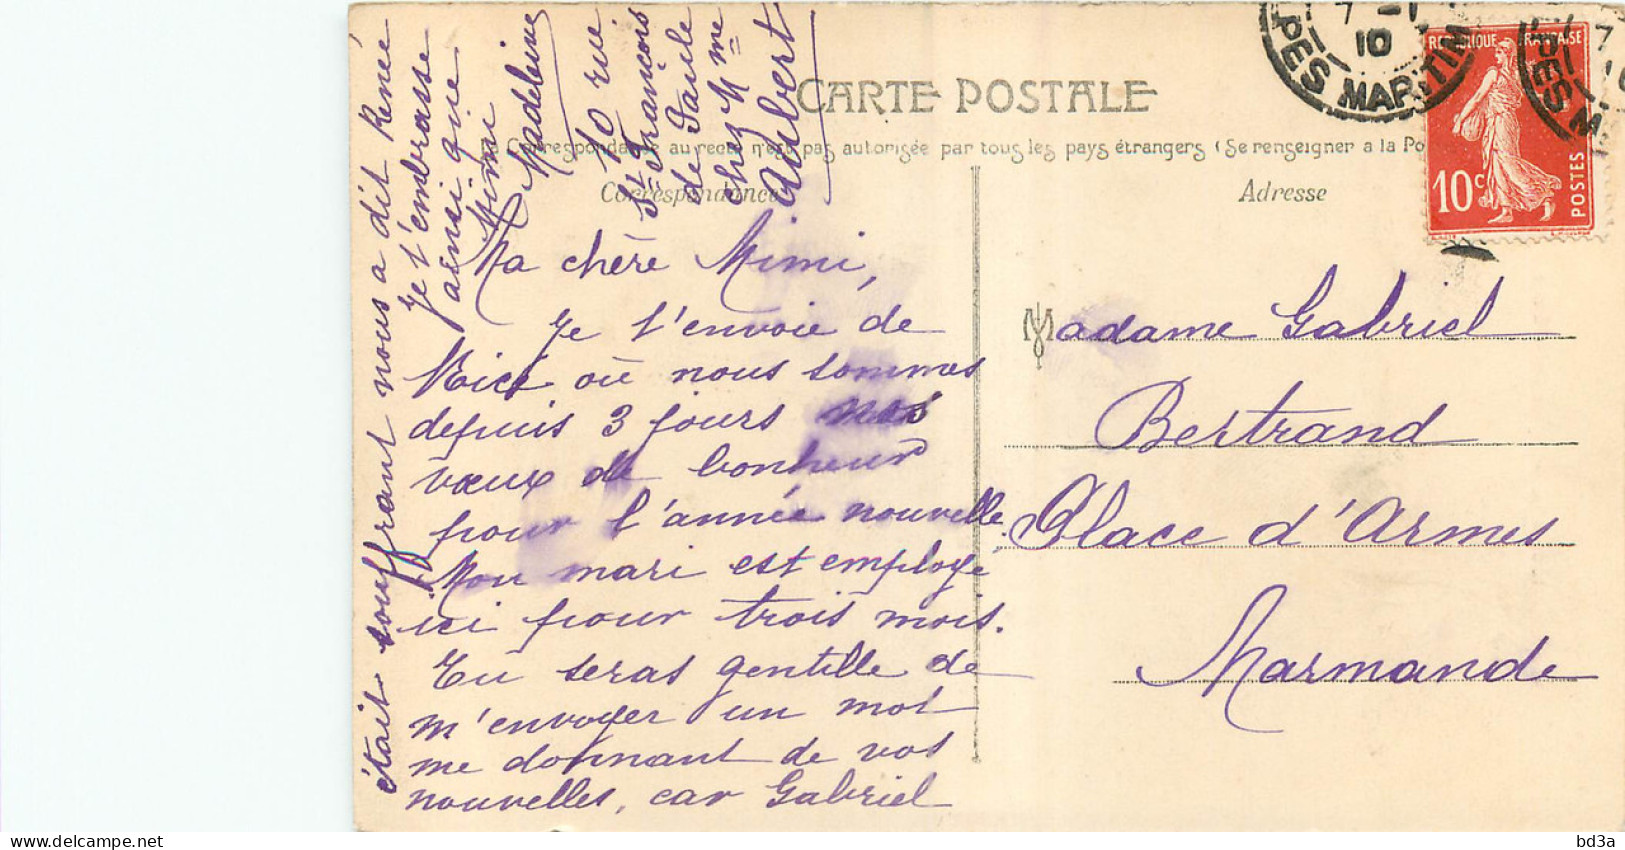 CARTE POSTALE
La Correspondance au recto n'est pas autorisée par tous les pays étrangers (Se renseigner a la Po
Correspondance
Adresse
Ma chère Mimi,
Je t'envoie de
Nice où nous sommes
depuis 3 jours nos
vœux de bonheur
pour l'année nouvelle.
Mon mari est employé
ici pour trois mois.
Tu seras gentille de
m'envoyer un mot
me donnant de vos
nouvelles, car Gabriel
était souffrant nous a dit René
Je t'embrasse
ainsi que
Mimi
Madeleine
10 rue
St François
de Paule
chez Mme
Aubert
Madame Gabriel
Bertrand
Place d'Armes
Marmande
REPUBLIQUE FRANÇAISE
10c
POSTES
7 -1
10
PES MARITIM
7
10
PES M
bd3a